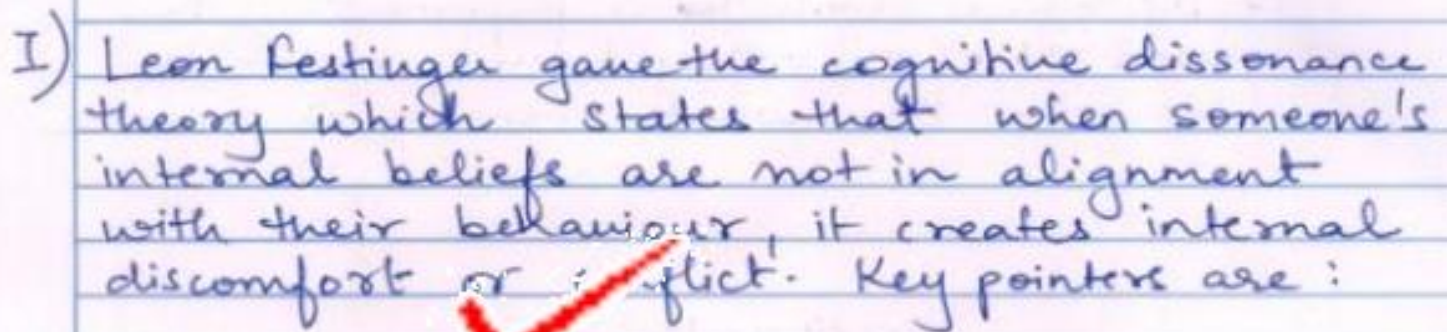 I) Leon Festinger gave the cognitive dissonance
theory which states that when someone's
internal beliefs are not in alignment
with their behaviour, it creates internal
discomfort or conflict. Key pointers are :